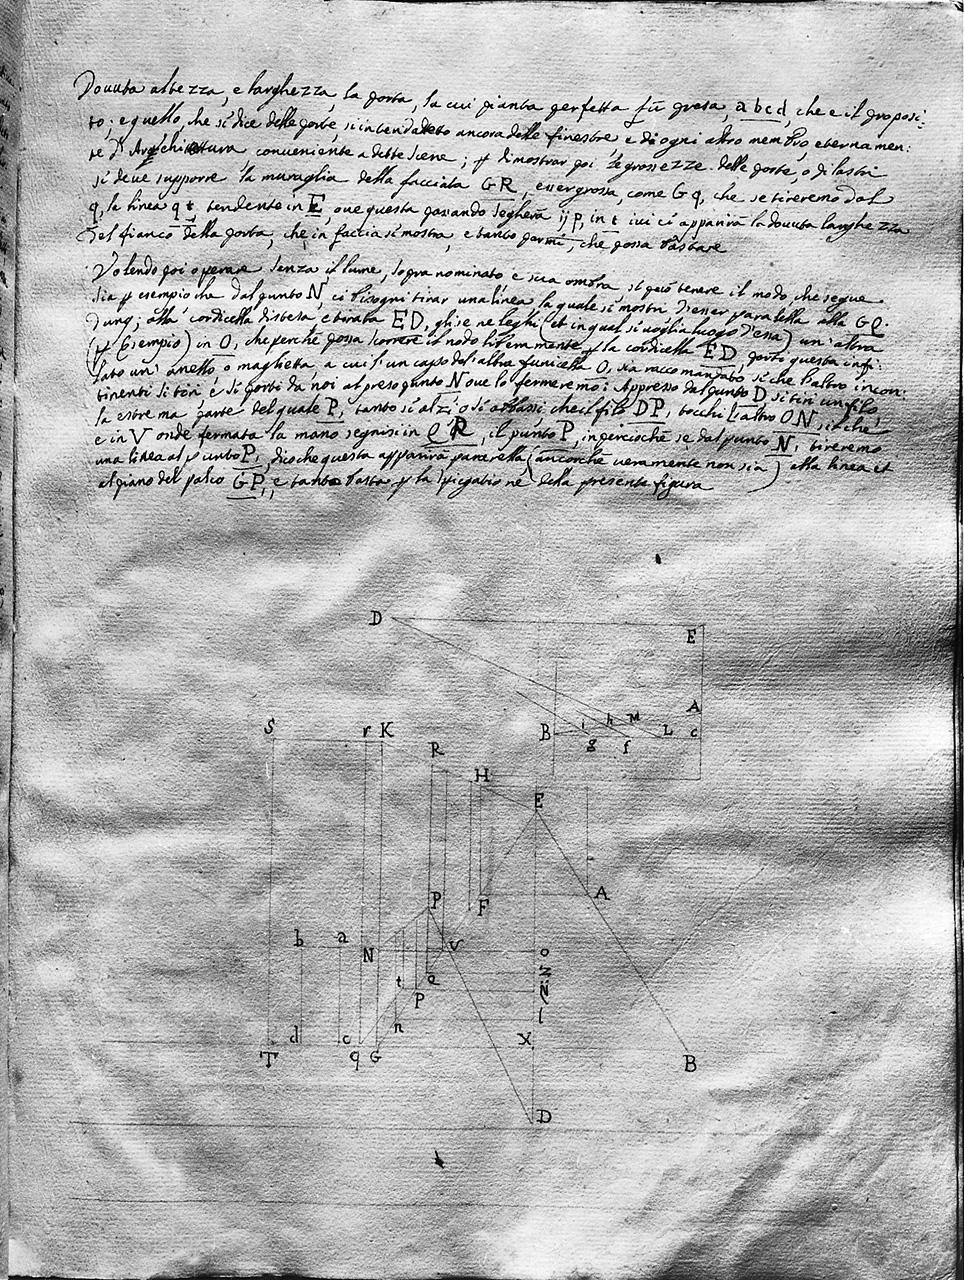 Douuta altezza, e larghezza, la porta, la cui pianta perfetta fù presa, abcd, che e il proposi:
to; e quello, che si dice delle porte si intenda detto ancora delle finestre e di ogni altro membro, eterna men:
te d'Architettura conueniente a dette scene; p dimostrar poi le grossezze delle porte, o pilastri
si deue supporre la muraglia della facciata GR, esser grossa, come Gq, che se tireremo dal
q, la linea qt tendente in E, oue questa passando segherà ij p, in t iui ci apparirà la douuta larghezza
del fianco della porta, che in faccia si mostra, e tanto parmi, che possa bastare
Volendo poi operare senza il lume, sopra nominato e sua ombra si può tenere il modo, che segue
Sia p esempio che dal punto N, ci bisogni tirar una linea la quale si mostri d'esser paralella alla GQ.
dunq; alla cordicella distesa e tirata ED, gli se ne leghi (et in qual si uoglia luogo d'essa) un'altra
(p Esempio) in O, che perche possa scorrere il nodo liberamente p la cordicella ED, porto questa infi:
lato un'anello o maglietta a cui l'un capo dell'altra funicella O, sia raccomandato si che l'altro incon:
tinenti si tiri e si porti da noi al preso punto N oue lo fermeremo; Appresso dal punto D si tiri un filo,
la estrema parte del quale P, tanto si alzi o si abbassi, che il filo DP, tocchi l'altro ON, si che
e in V onde fermata la mano segnisi in QR, il punto P, impercioche se dal punto N, tireremo
una linea al punto P, dico che questa apparirà pararella (ancorche ueramente non sia) alla linea et
al piano del palco GP,, e tanto basta p la spiegatione della presente figura
D
E
A
B i h M L c
g f
S r K
R
H
E
A
P
F
b a
N
V
o
z
N
t
Q
P
l
n
X
d c
T q G
B
D